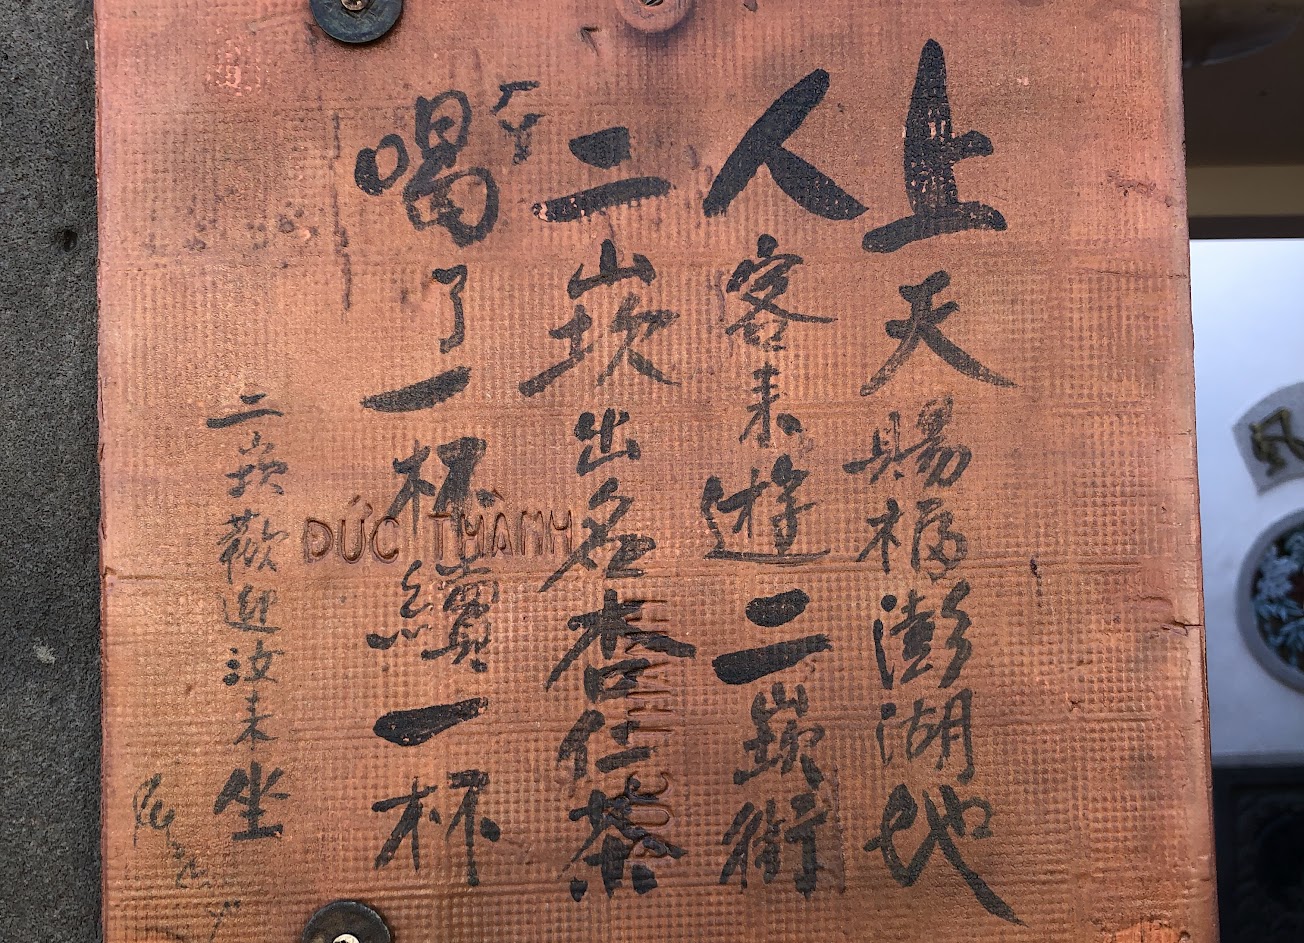 上天賜福澎湖地
人客來遊二崁街
二崁出名杏仁茶
喝了一杯續一杯
二崁歡迎汝来坐
ĐỨC THÀNH